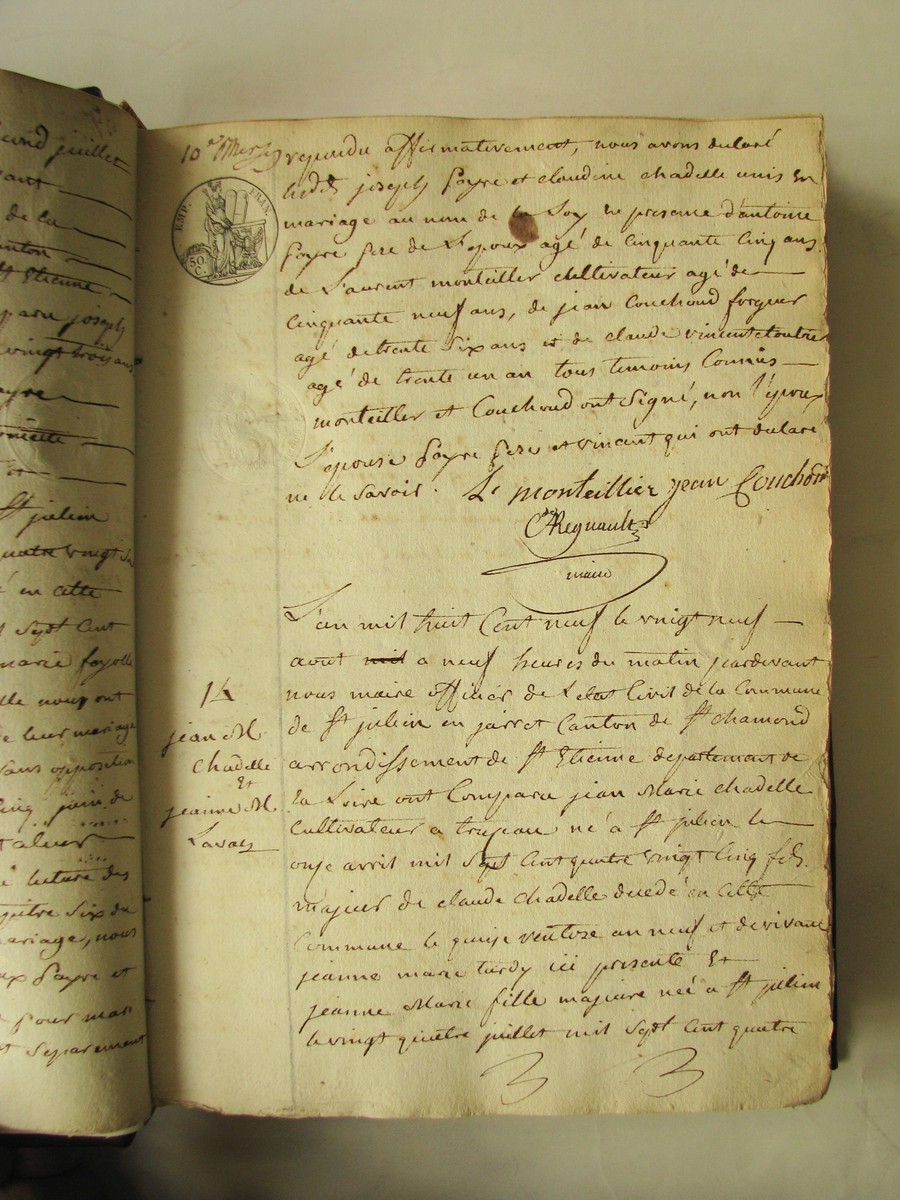 cond juillet
ant
de la
anton
St Etienne
paru joseph
vingt trois ans
ayre
omicile
et
St julien
quatre vingt
é en cette
Sept Cent
marie fayolle
lle nous ont
e leur mariage
sans opposition
cinq juin de
aleur
lecture des
pitre Six du
ariage, nous
ux fayre et
pour mari
t separement
10e
EMP. FRAN.
50 C.
repondu affirmativement, nous avons declaré
lesdts joseph fayre et claudine chadelle unis en
mariage au nom de la Loy En presence d'antoine
fayre pere de L'epoux agé de Cinquante Cinq ans
de Laurent monteiller Cultivateur agé de
Cinquante neuf ans, de jean Couchoud forgeur
agé de trente Six ans et de claude vincent
agé de trente un an tous temoins Connus
monteiller et Couchoud ont Signé, non l'epoux
L'epouse fayre pere et vincant qui ont declaré
ne le Savoir. Lt monteillier jean Couchoud
Regnault
maire
14
jean M.
Chadelle
Et
jeanne M.
Laval
L'an mil huit Cent neuf le vingt neuf
aout mil a neuf heures du matin pardevant
nous maire officier de L'etat Civil de la Commune
de St julien en jarret Canton de St chamond
arrondissement de St Etienne departement de
la Loire ont Comparu jean Marie chadelle
Cultivateur a né a St julien le
onze avril mil Sept Cent quatre vingt Cinq fils
majeur de claude chadelle decedé en Cette
Commune le quinze ventose an neuf et de vivante
jeanne marie tardy ici presente Et
jeanne Marie fille majeure neé a St julien
le vingt quatre juillet mil Sept Cent quatre